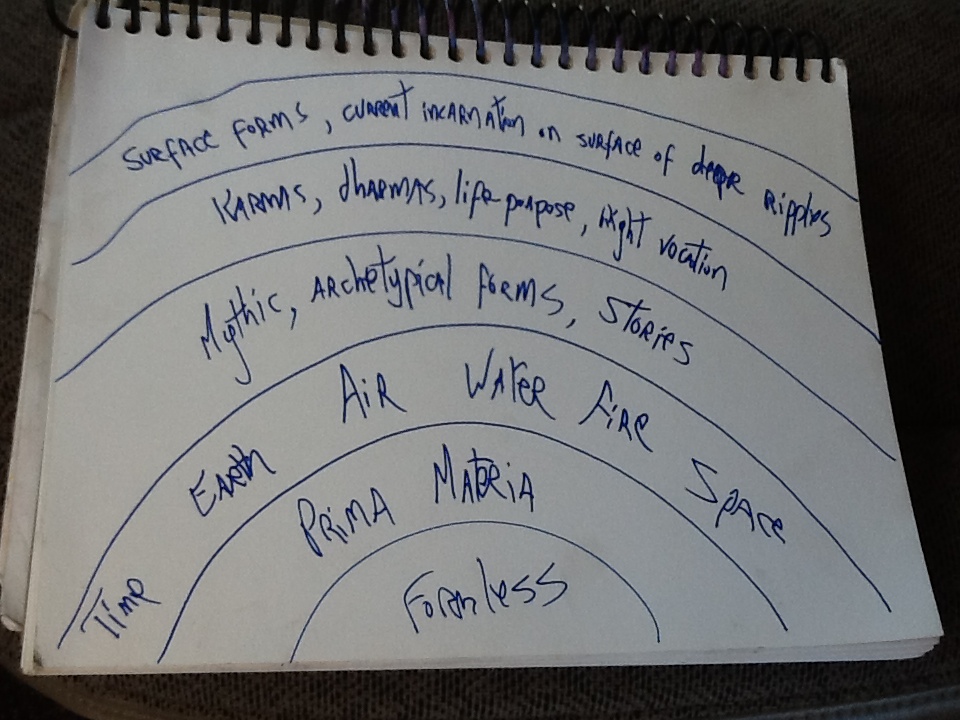 Surface forms, current incarnation on surface of deeper ripples
Karmas, dharmas, life-purpose, right vocation
Mythic, archetypical forms, stories
Time Earth Air Water Fire Space
Prima Materia
Formless